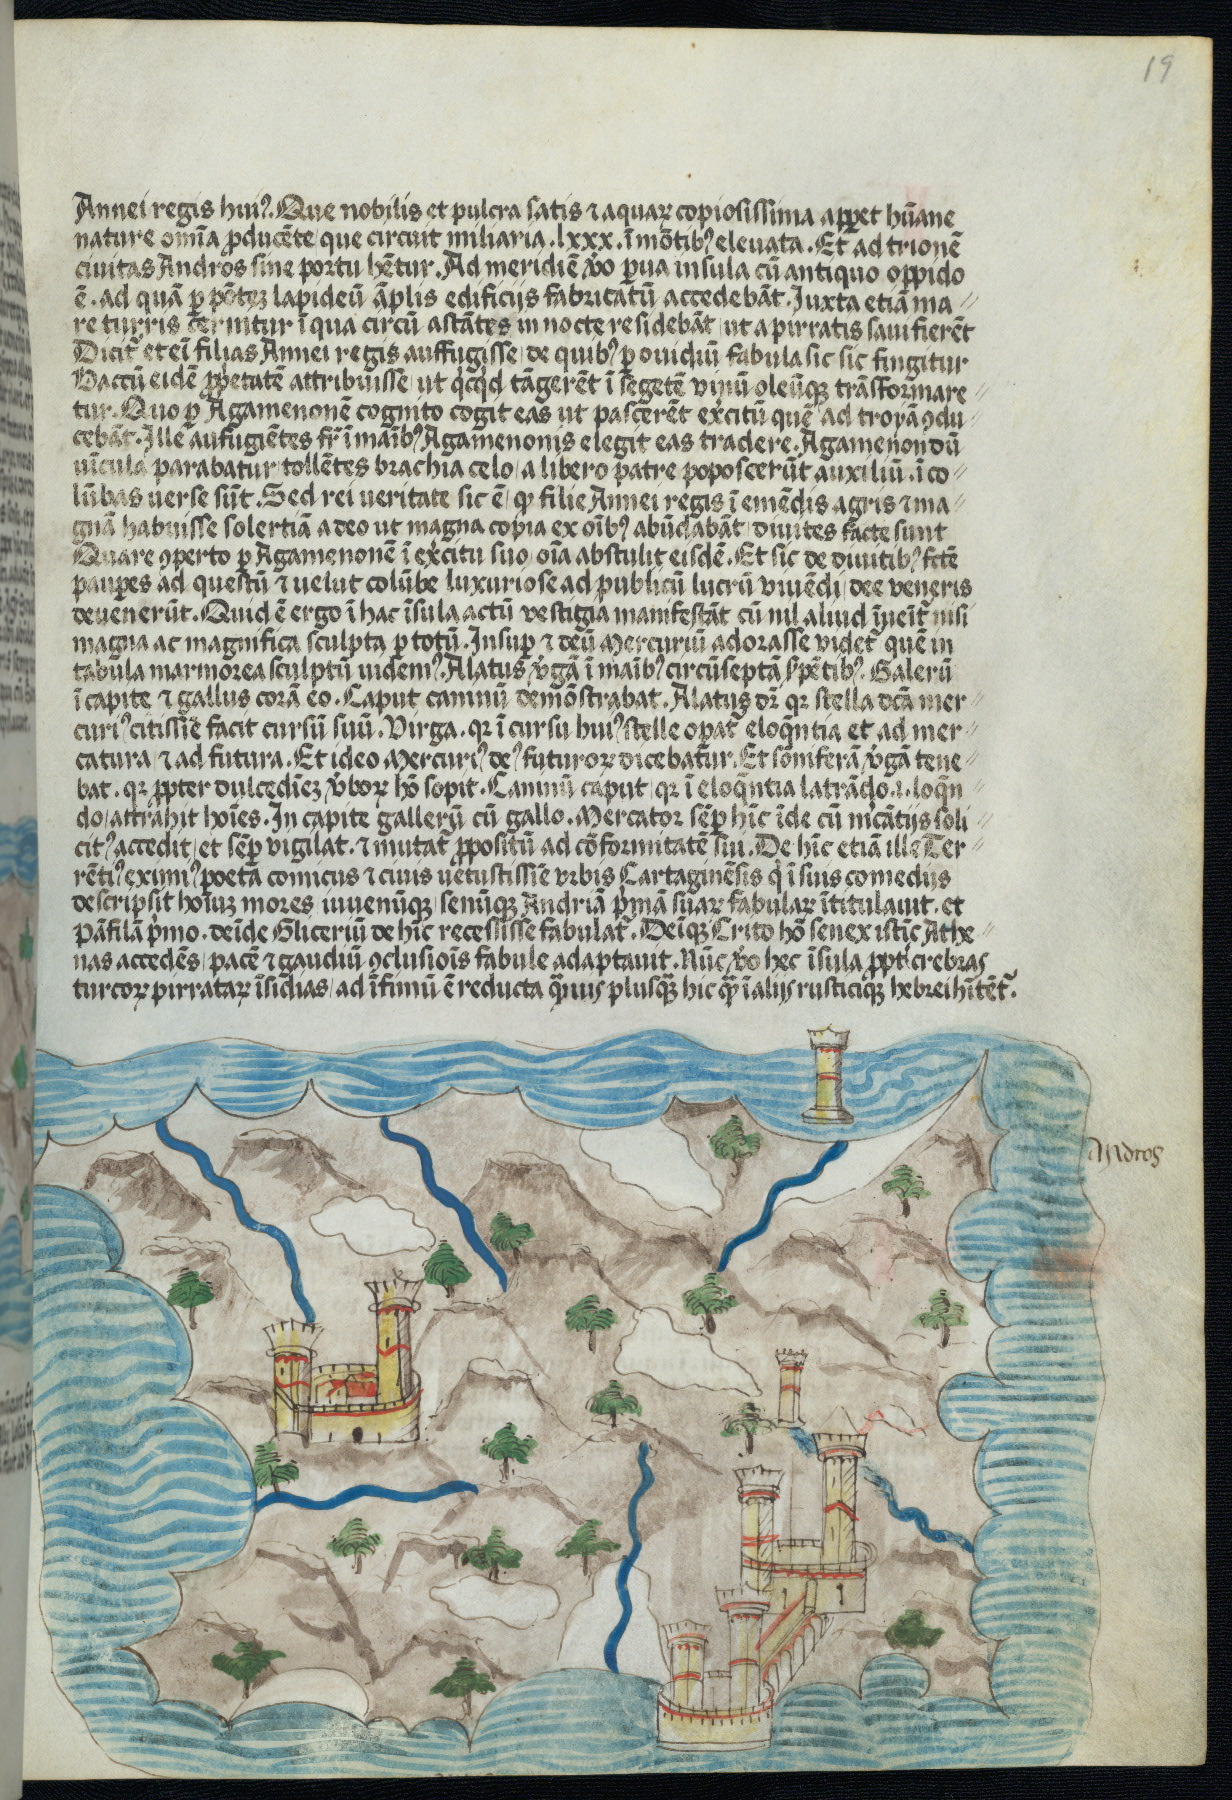 19
Annei regis huiꝰ. Que nobilis et pulcra satis ⁊ aquaꝝ copiosissima apꝑet hūane
nature om̄ia ꝓducēte que circuit miliaria . lxxx . ī mōtibꝰ eleuata . Et ad trionē
ciuitas Andros sine portu hētur . Ad meridiē v̄o ꝑua insula cū antiquo oppido
ē . ad quā ꝑ pōteꝫ lapideū āplis edificijs fabricatū accedebāt . Juxta etiā ma
re turris cernitur ī qua circū astātes in nocte residebāt ut a pirratis saui fierēt
Dicit̄ et eī filias Annei regis auffugisse de quibꝰ ꝑ ouidiū fabula sic sic fingitur
Baccū eidē ꝓpetatē attribuisse ut qͥcqͥd tāgerēt ī segetē vinū oleūqꝫ trāsformare
tur . Quo ꝑ Agamenonē cognito cogit eas ut pascerēt excitū quē ad troyā ꝯdu
cebāt . Ille aufugiētes fr̄ ī maībꝰ Agamenonis elegit eas tradere . Agamenon dū
vīcula parabatur tollētes brachia celo a libero patre poposcerūt auxiliū . ī co
lūbas verse sūt . Sed rei veritate sic ē ꝙ filie Annei regis ī emēdis agris ⁊ ma
gnā habuisse solertiā adeo ut magna copia ex oībꝰ abūdabāt diuites facte sunt
Quare ꝯperto ꝑ Agamenonē ī excitu suo oīa abstulit eisdē . Et sic de diuitibꝰ fctē
pauꝑes ad questū ⁊ uelut colūbe luxuriose ad publicū lucrū viuēdi dee veneris
deuenerūt . Quid ē ergo ī hac īsula actū vestigia manifestāt cū nil aliud īueīt̄ nisi
magna ac magnifica sculpta ꝑ totū . Insuꝑ ⁊ deū Mercuriū adorasse videt̄ quē in
tabula marmorea sculptū uidemꝰ . Alatus v̄gā ī maībꝰ circūseptā ṡpētibꝰ . Galerū
ī capite ⁊ gallus corā eo . Caput caninū demōstrabat . Alatus dr̄ qꝛ stella dc̄a mer
curiꝰ citissīe facit cursū suū . Virga . qꝛ ī cursu huiꝰ stelle opat̄ eloq̄ntia et ad mer
catura ⁊ ad futura . Et ideo Mercuriꝰ deꝰ futuroꝝ dicebat̄ur . Et sōniferā v̄gā tene
bat . qꝛ ꝓpter dulcedīeꝫ v̄boꝝ hō sopit . Caninū caput qꝛ ī eloq̄ntia latrādo .i. loq̄n
do attrahit hoīes . In capite gallerū cū gallo . Mercator sēꝑ hīc īde cū mc̄atijs soli
citꝰ accedit et sēꝑ vigilat . ⁊ mutat̄ ꝓpositū ad cōformitatē sui . De hīc etiā ille Ter
rētiꝰ eximiꝰ poeta comicus ⁊ ciuis uetustissīe vrbis Cartaginēsis qͥ ī suis comedijs
descripsit hoīuꝫ mores iuuenūqꝫ senūqꝫ Andriā pͥmā suaꝝ fabulaꝝ ītitulauit . et
Pāfilā pͥmo . deīde Gliceriū de hīc recessisse fabulat̄ . Deīqꝫ Crito hō senex istīc Athe
nas accedēs pacē ⁊ gaudiū ꝯclusioīs fabule adaptauit . Nūc v̄o hec īsula ꝓpt̄ crebras
turcoꝝ pirrataꝝ īsidias ad īfimū ē reducta q̄ꝫuis plusqꝫ hic qꝫ ī alijs rusticiqꝫ hebrei hītēt̄ .
Andros